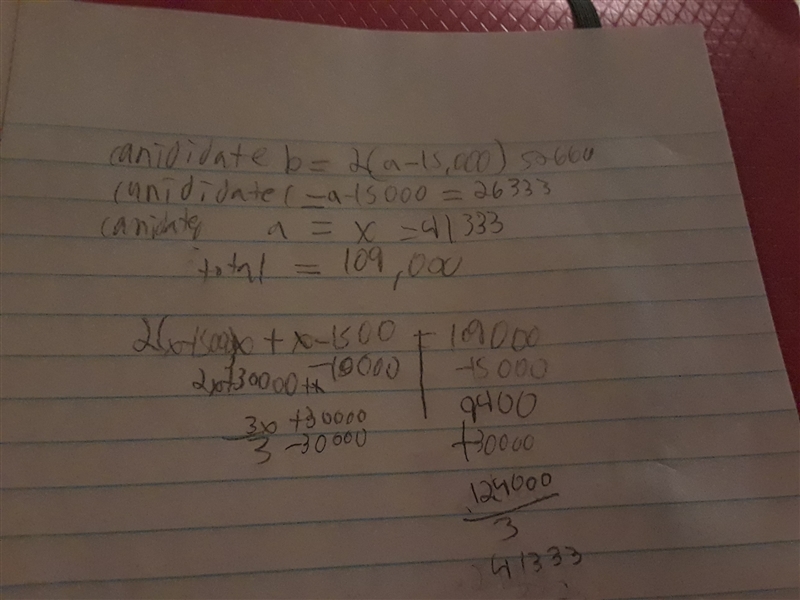 canididate b = 2(a-15,000) 52660
canididate c = a-15000 = 26333
canidate a = x = 41333
total = 109,000
2(x-1500)x + x-1500 = 109000
2x+30000+x -15000 -15000
9400
3x +30000 +30000
3 -30000
124000
3
41333